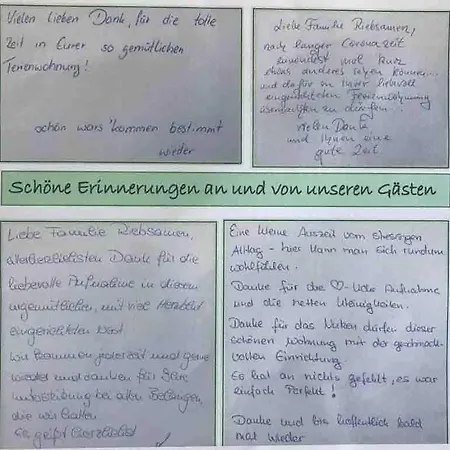 Vielen lieben Dank, für die tolle
Zeit in Eurer so gemütlichen
Ferienwohnung!
schön wars kommen bestimmt
wieder
Liebe Familie Riebsamen,
nach langer Coronazeit
zumindest mal kurz
etwas anderes sehen können...
und dafür in Ihrer liebevoll
eingerichteten Ferienwohnung
übernachten zu dürfen...
vielen Dank
und Ihnen eine
gute Zeit
Schöne Erinnerungen an und von unseren Gästen
Liebe Familie Riebsamen,
allerherzlichsten Dank für die
liebevolle Aufnahme in diesem
urgemütlichen, mit viel Herzblut
eingerichteten Nest
Wir kommen jederzeit und gerne
wieder und danken für Ihre
Unterstützung bei allen Belangen,
die wir hatten
Es grüßt herzlichst
Eine kleine Auszeit vom stressigen
Alltag - hier kann man sich rundum
wohlfühlen.
Danke für die ♡-liche Aufnahme
und die netten Kleinigkeiten.
Danke für das Nutzen dürfen dieser
schönen Wohnung mit der geschmack-
vollen Einrichtung.
Es hat an nichts gefehlt, es war
einfach Perfekt!
Danke und bis hoffentlich bald
mal wieder